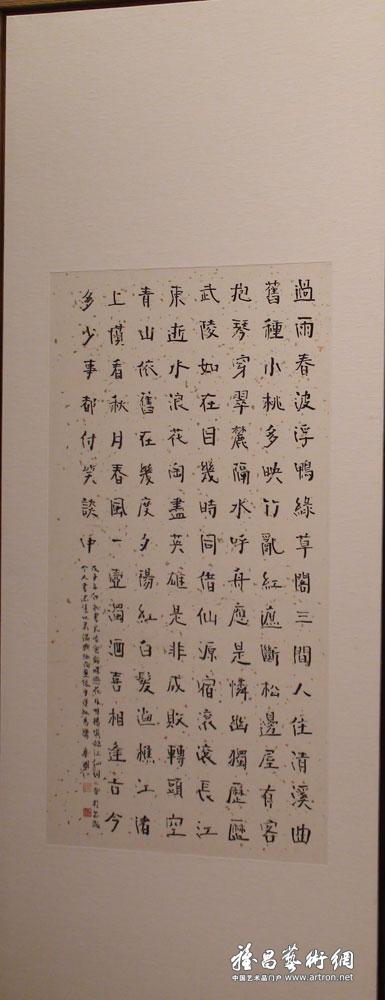 過雨春波浮鴨綠草閣三間人住清溪曲
舊種小桃多映竹亂紅遮斷松邊屋有客
抱琴穿翠麓隔水呼舟應是憐幽獨歷歷
武陵如在目幾時同借仙源宿滾滾長江
東逝水浪花淘盡英雄是非成敗轉頭空
青山依舊在幾度夕陽紅白髮漁樵江渚
上慣看秋月春風一壺濁酒喜相逢古今
多少事都付笑談中
雅昌藝術網
中国艺术品门户 www.artron.net